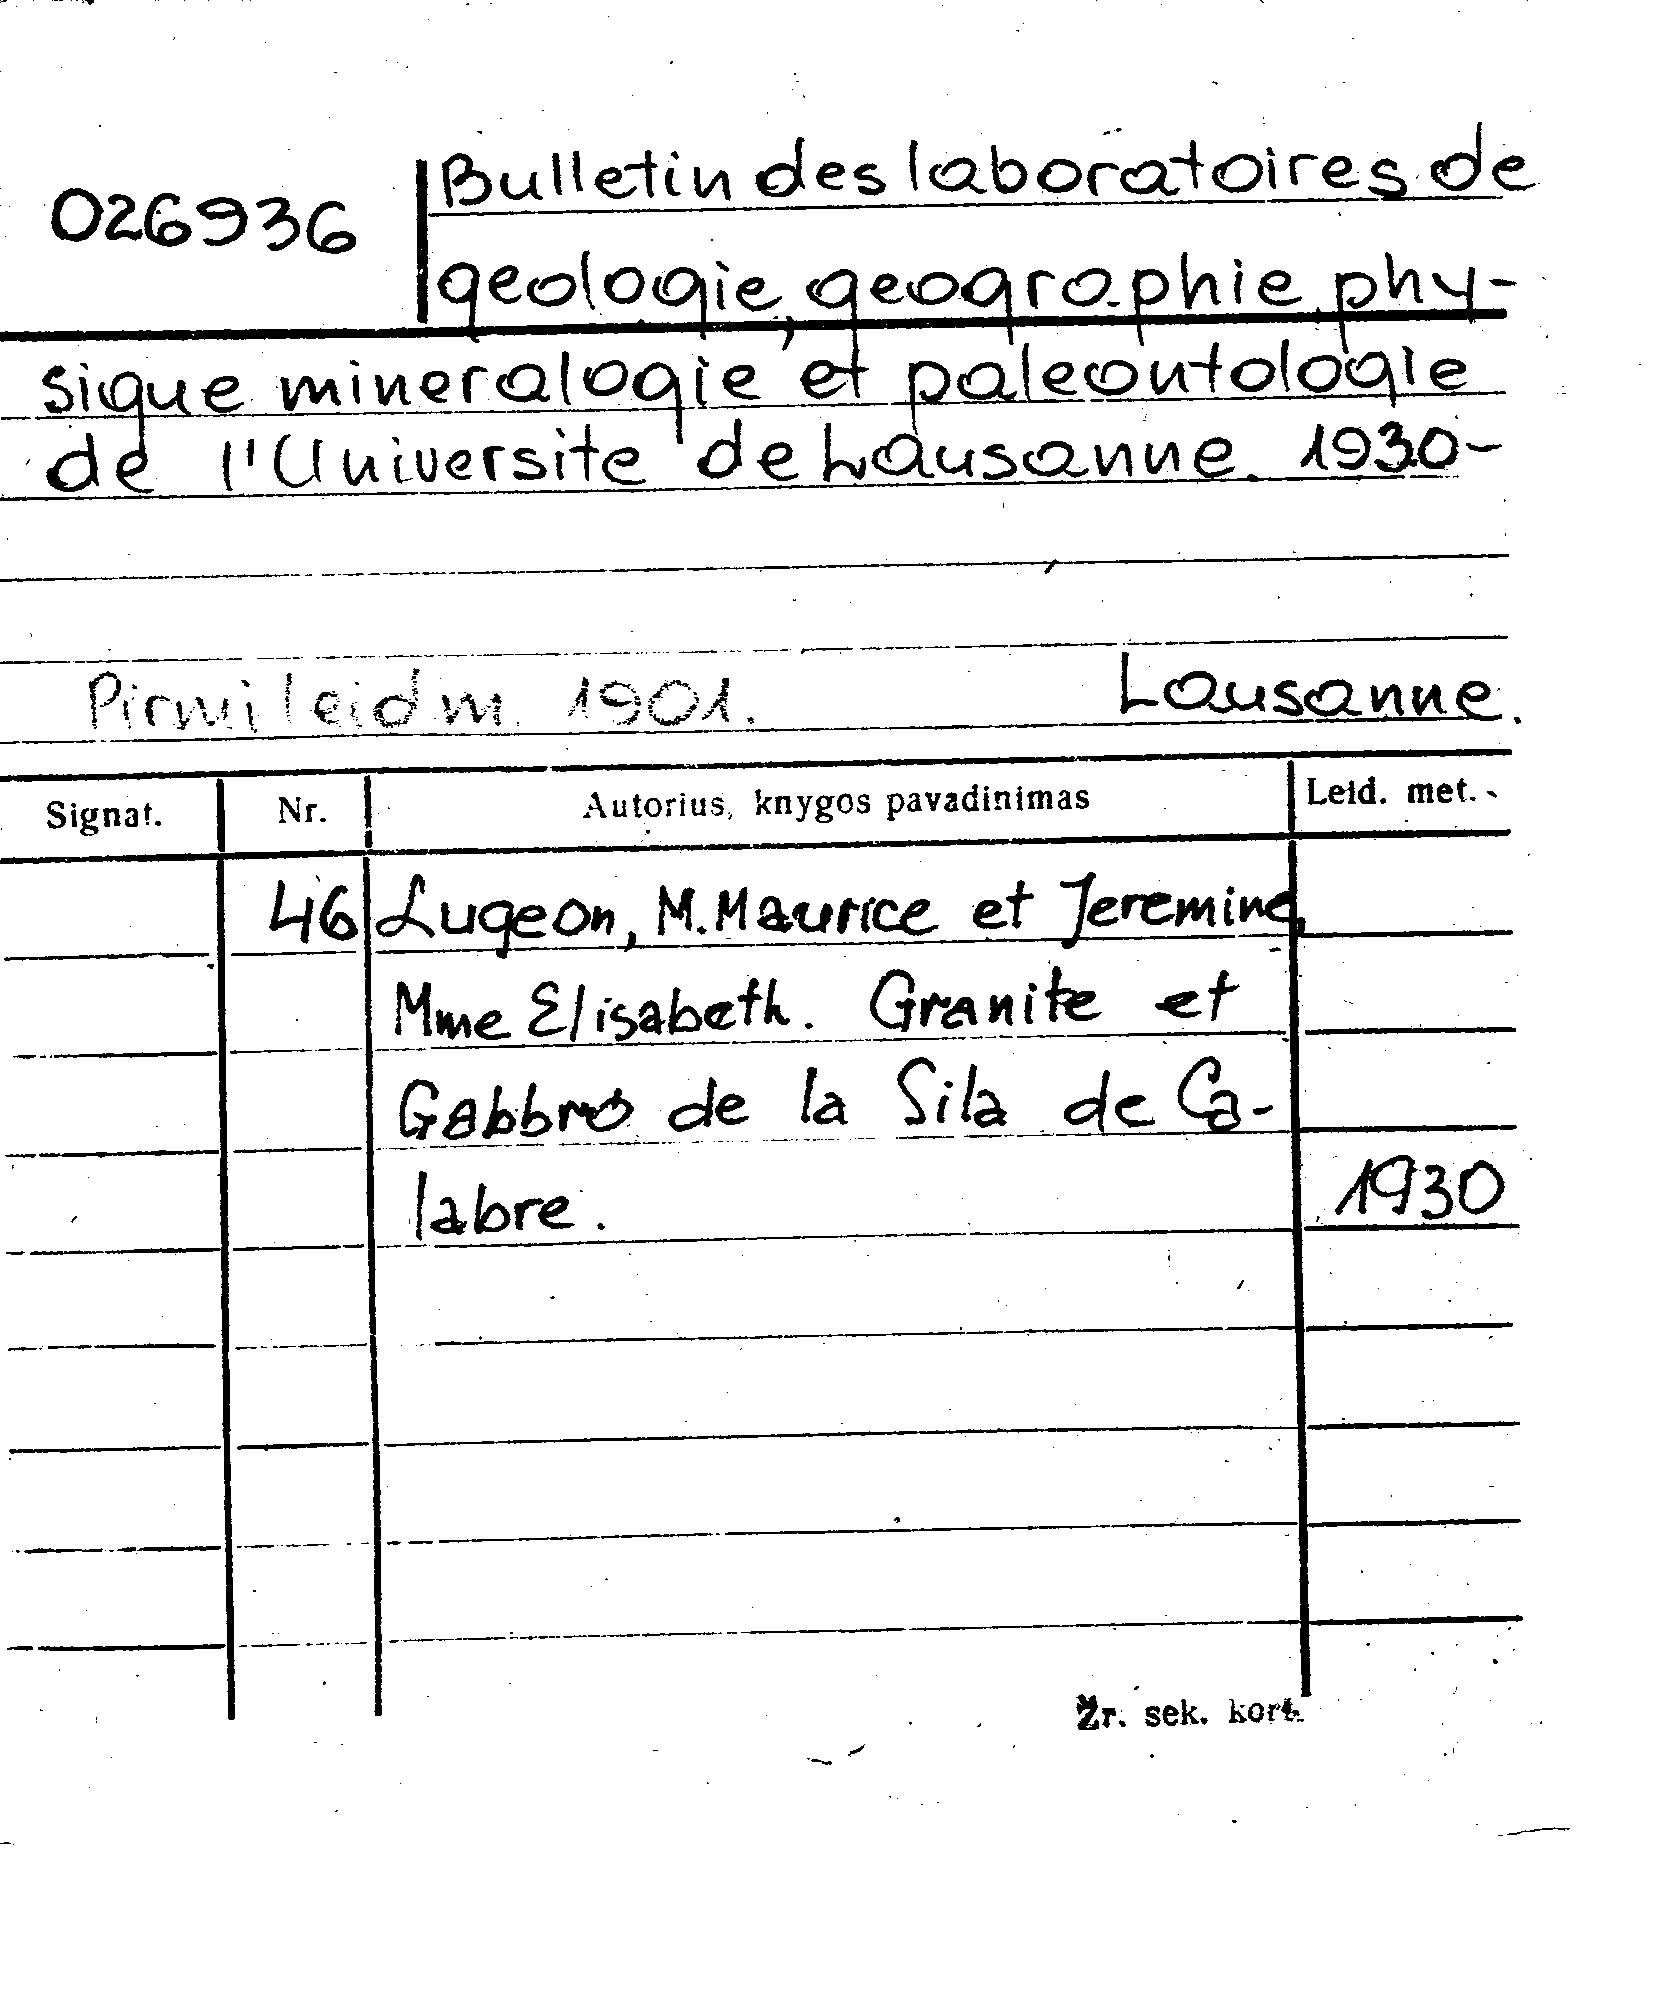 026936 Bulletin des laboratoires de
geologie, geographie phy-
sique mineralogie et paleontologie
de l'Universite de Lausanne. 1930-
Pirmi leid m. 1901. Lausanne.
Signat. Nr. Autorius, knygos pavadinimas Leid. met.
46 Lugeon, M. Maurice et Jeremine,
Mme Elisabeth. Granite et
Gabbro de la Sila de Ca-
labre. 1930
Žr. sek. kort.